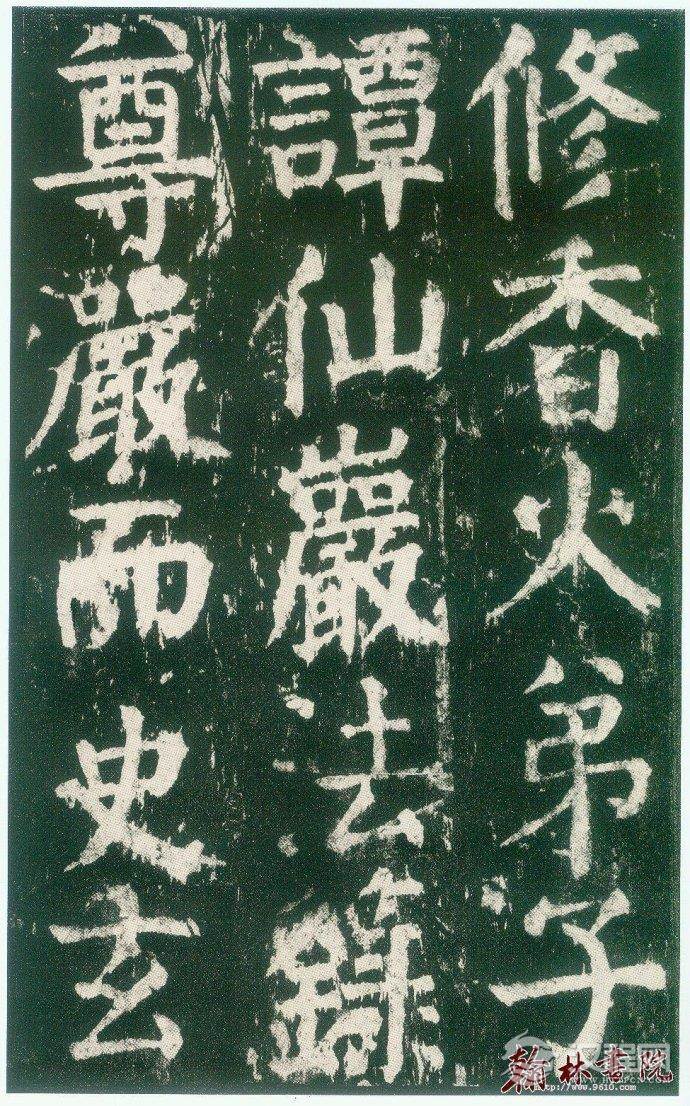 修香火弟子
譚仙巖法籙
尊嚴而史玄
翰林書院
http://www.9610.com